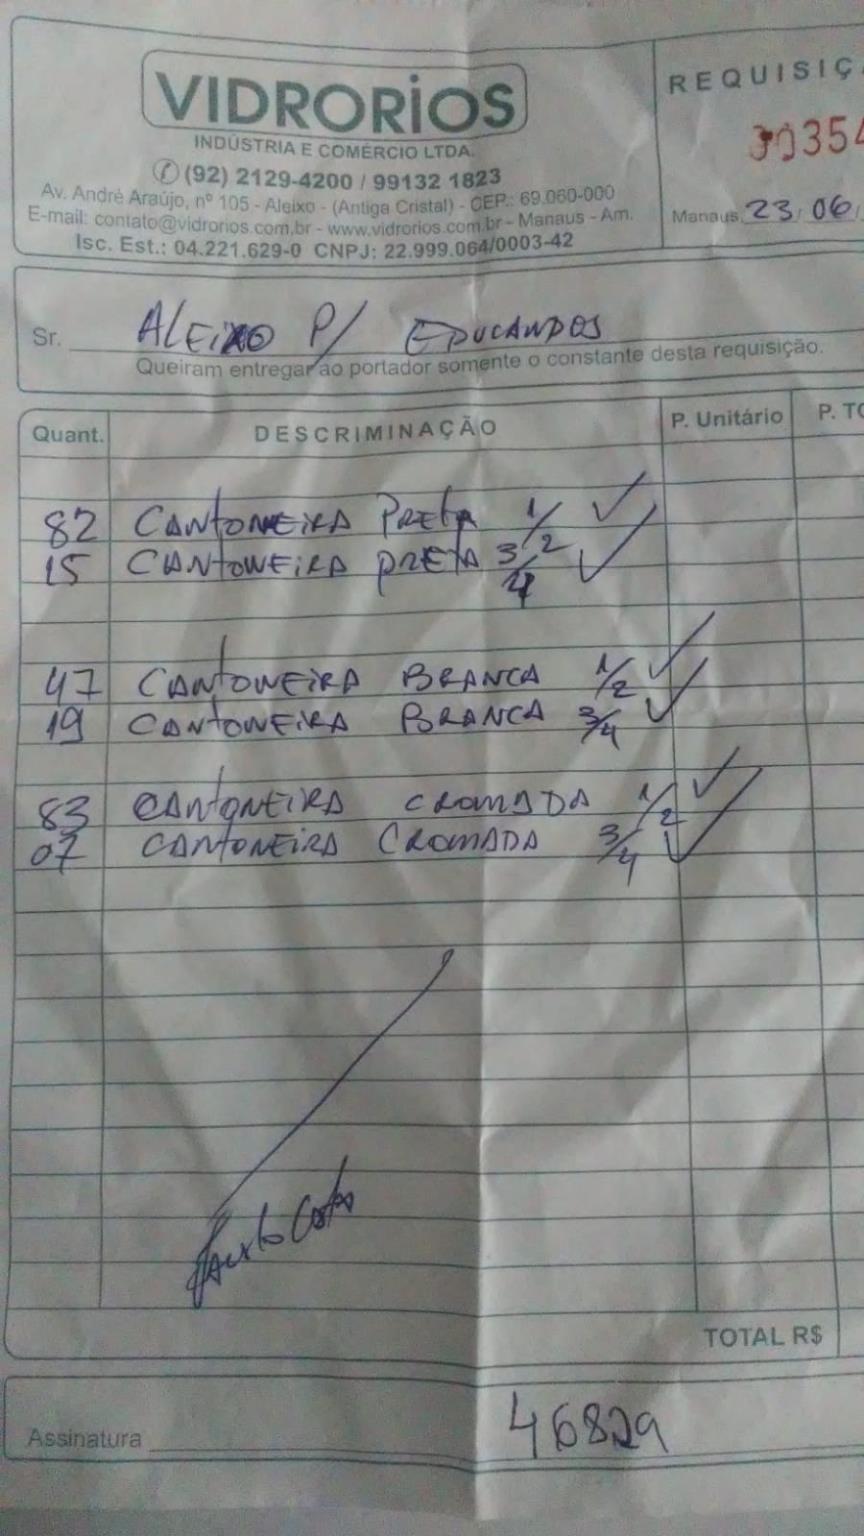 VIDRORIOS
INDÚSTRIA E COMÉRCIO LTDA.
(92) 2129-4200 / 99132 1823
Av. André Araújo, nº 105 - Aleixo - (Antiga Cristal) - CEP.: 69.060-000
E-mail: contato@vidrorios.com.br - www.vidrorios.com.br - Manaus - Am.
Isc. Est.: 04.221.629-0 CNPJ: 22.999.064/0003-42
REQUISIÇ
Manaus, 23/06/
Sr. ALEIXO P/ EDUCANDOS
Queiram entregar ao portador somente o constante desta requisição.
Quant. DESCRIMINAÇÃO P. Unitário P. TO
82 CANTONEIRA PRETA 1/2 ✓
15 CANTONEIRA PRETA 3/4 ✓
47 CANTONEIRA BRANCA 1/2 ✓
19 CANTONEIRA BRANCA 3/4 ✓
83 CANTONEIRA CROMADA 1/2 ✓
07 CANTONEIRA CROMADA 3/4 ✓
TOTAL R$
Assinatura
46829